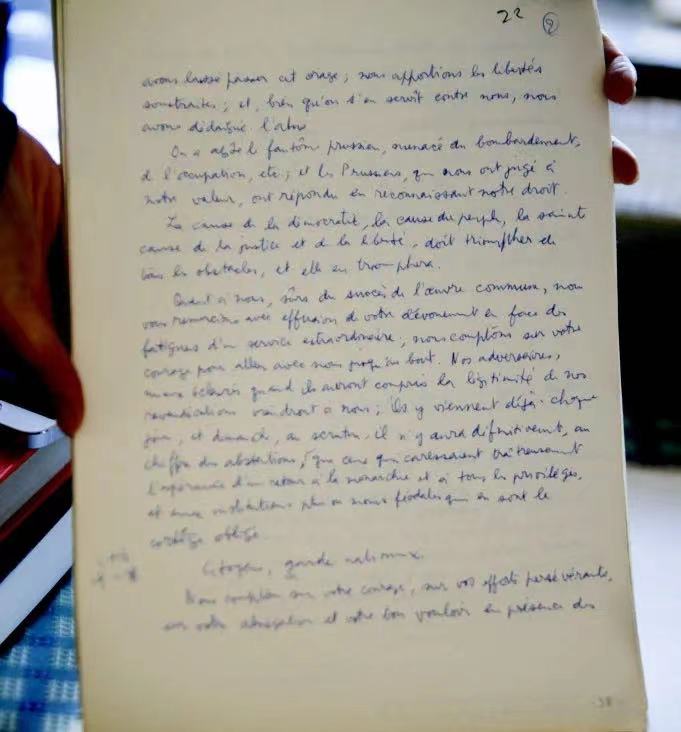 22 2
avons laissé passer cet orage ; nous apportions les libertés
soustraites ; et, bien qu'on s'en servît contre nous, nous
avons dédaigné l'abus
On a agité le fantôme prussien, menacé du bombardement,
de l'occupation, etc ; et les Prussiens, qui nous ont jugé à
notre valeur, ont répondu en reconnaissant notre droit.
La cause de la démocratie, la cause du peuple, la sainte
cause de la justice et de la liberté, doit triompher de
tous les obstacles, et elle en triomphera.
Quant à nous, sûrs du succès de l'œuvre commune, nous
vous remercions avec effusion de votre dévouement en face des
fatigues d'un service extraordinaire ; nous comptons sur votre
courage pour aller avec nous jusqu'au bout. Nos adversaires,
mieux éclairés quand ils auront compris la légitimité de nos
revendications viendront à nous ; ils y viennent déjà chaque
jour, et dimanche, au scrutin il n'y aura définitivement, au
chiffre des abstentions, que ceux qui caressent traîtreusement
l'espérance d'un retour à la monarchie et à tous les privilèges,
et aux institutions plus ou moins féodales qui en sont le
cortège obligé.
Citoyens, garde nationaux.
Nous comptons sur votre courage, sur vos efforts persévérants,
sur votre abnégation et votre bon vouloir en présence des
38